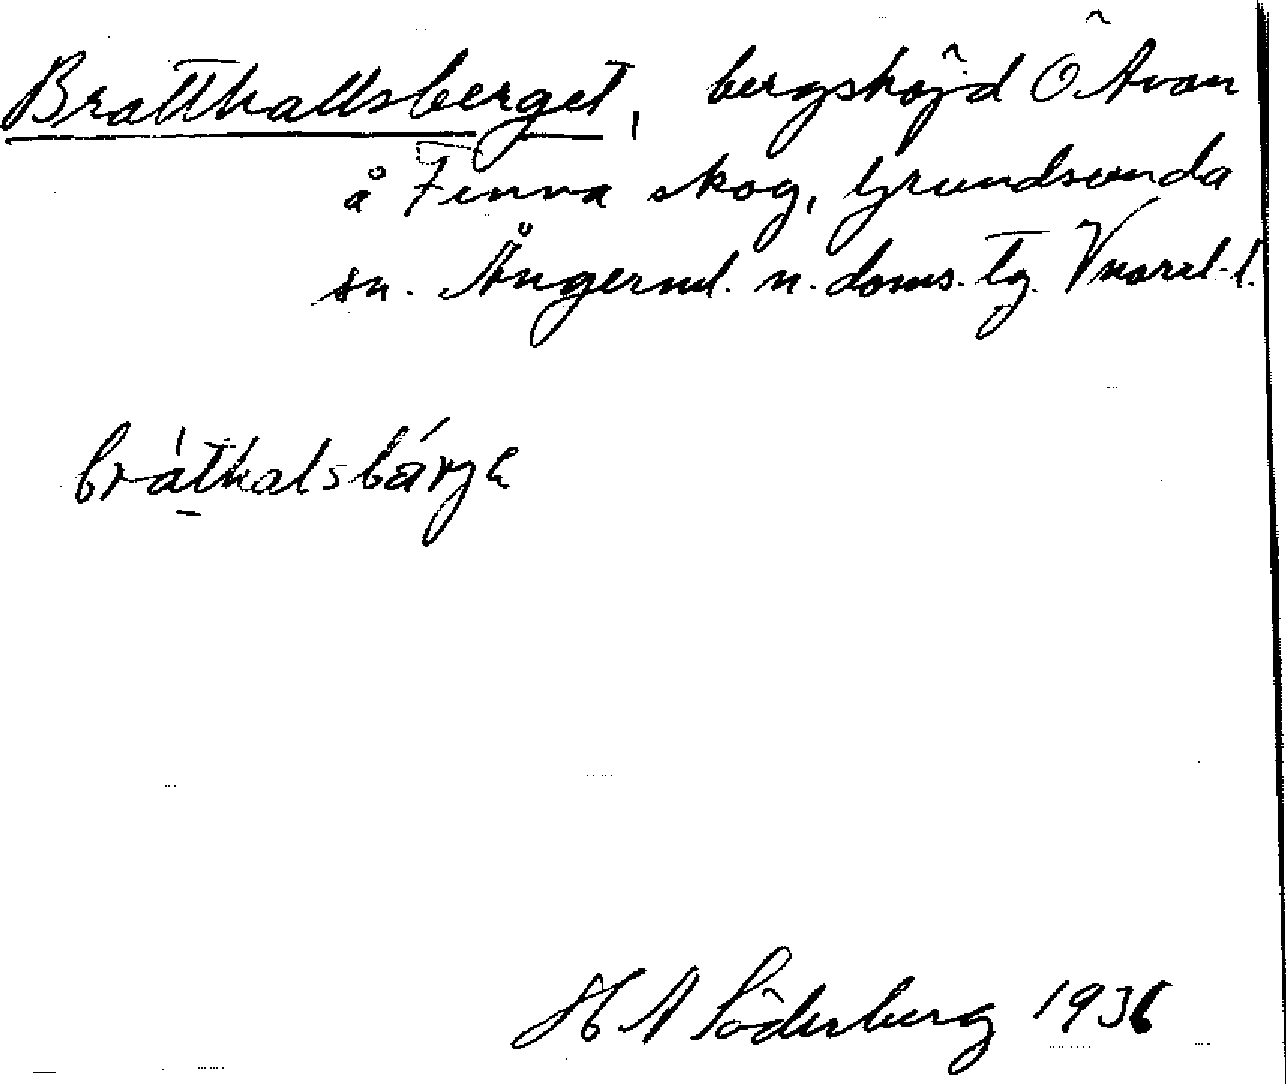 Bratthallsberget, bergshöjd Ö Avan
å Finna skog, Grundsunda
sn. Ångerml. n. doms. tg. Vnorrl. l.
bråthalsbárge
H A Söderberg 1936